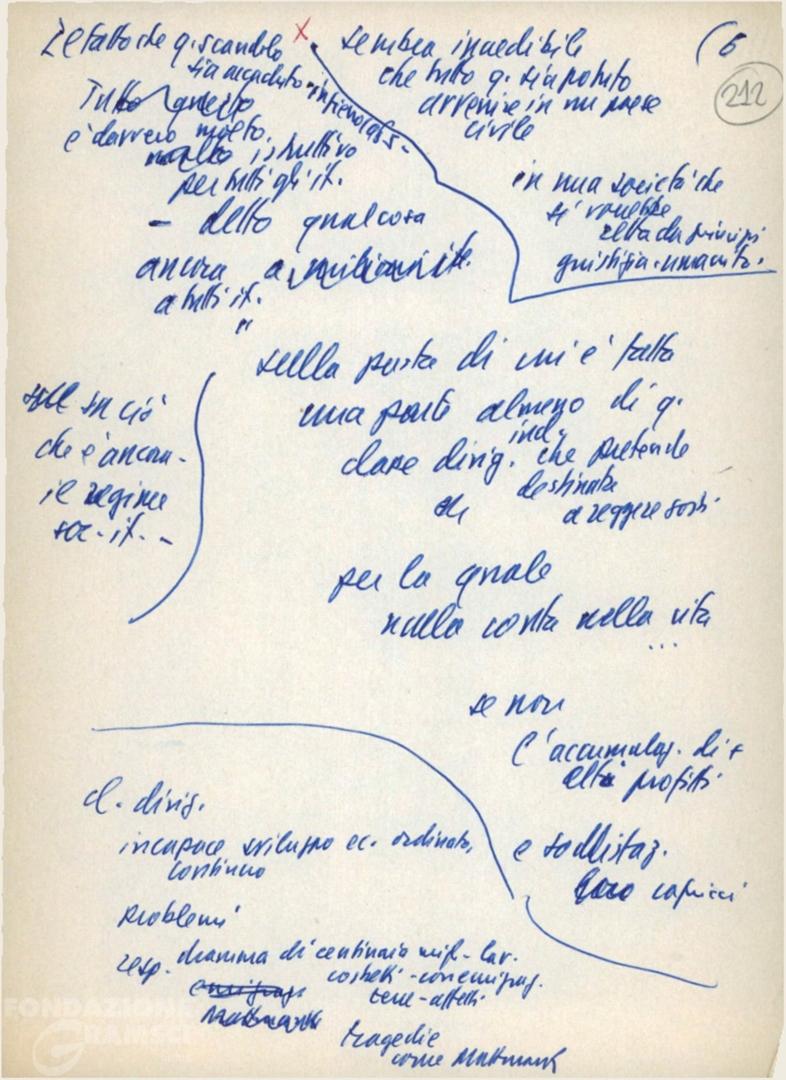 (6
212
Il fatto che q. scandalo
sia accaduto
Tutto questo
è davvero molto
istruttivo
per tutti gli it.
- detto qualcosa
ancora a
a tutti it.
"
x
sembra incredibile
che tutto q. sia potuto
avvenire in un paese
civile
in una società che
si vorrebbe
retta da principi
giustizia - umanità.
sulla pasta di cui è fatta
una parte almeno di q.
ind.
classe dirig. che pretende
destinata
a reggere sorti
su ciò
che è ancora -
il regime
soc. it. -
per la quale
nulla conta nella vita
...
se non
l'accumulaz. di +
alti profitti
e soddisfaz.
loro capricci
cl. dirig.
incapace sviluppo ec. ordinato,
continuo
problemi
resp. dramma di centinaia migl. lav.
costretti - con emigraz.
terre - affetti
tragedie
come Mattmark
FONDAZIONE
GRAMSCI